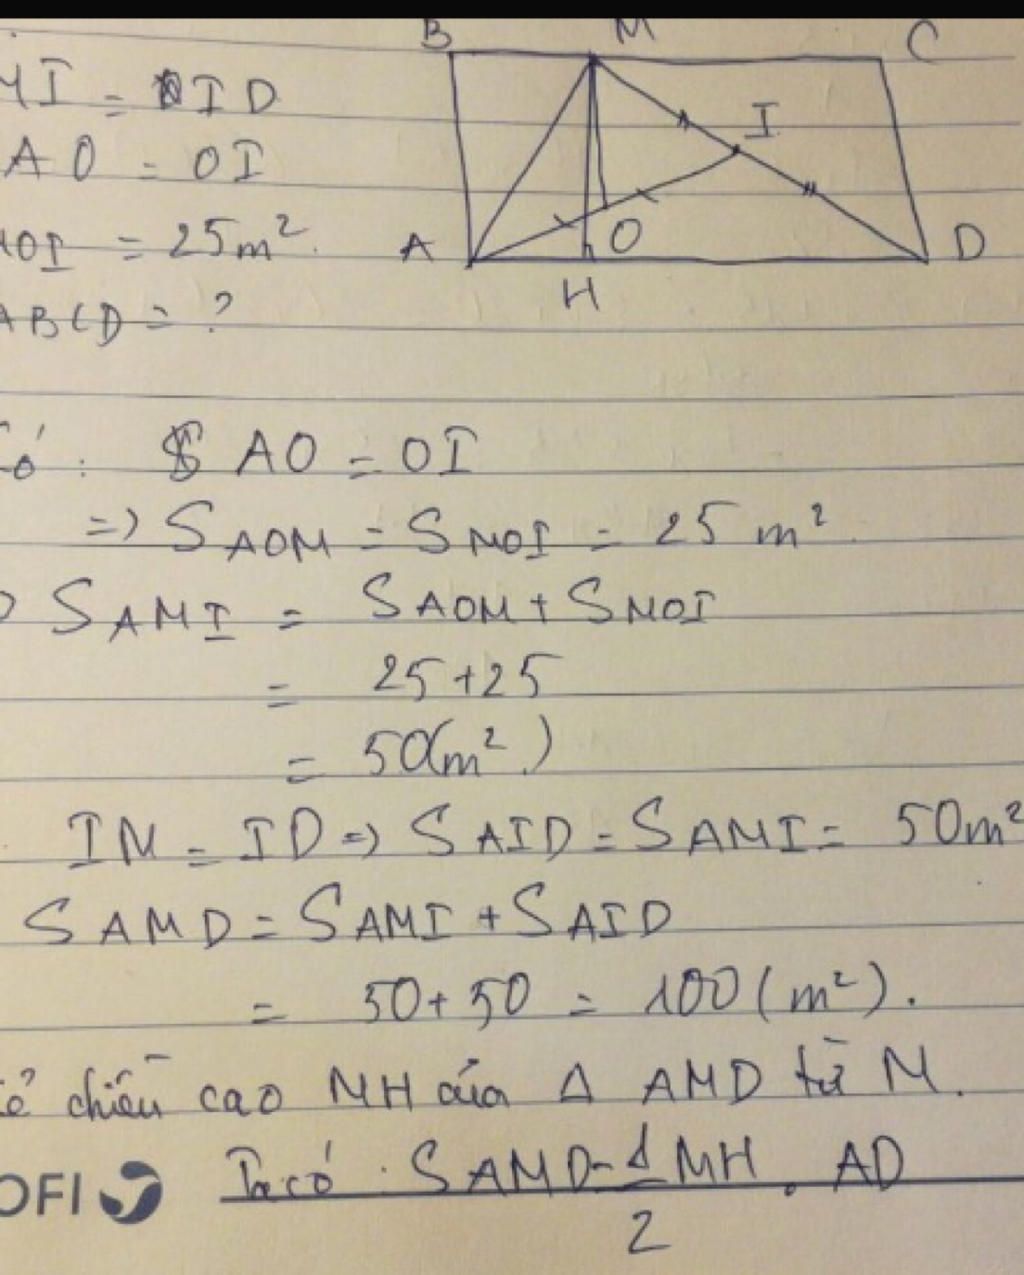 B M C
MI = ID
I
AO = OI
MOI = 25m².
A O D
H
ABCD = ?
Có : AO = OI
=> SAOM = SMOI = 25 m².
SAMI = SAOM + SMOI
= 25 + 25
= 50(m²)
IM = ID => SAID = SAMI = 50m²
SAMD = SAMI + SAID
= 50 + 50 = 100 (m²).
kẻ chiều cao MH của Δ AMD từ M.
OFI Ta có : SAMD = 1/2 MH . AD